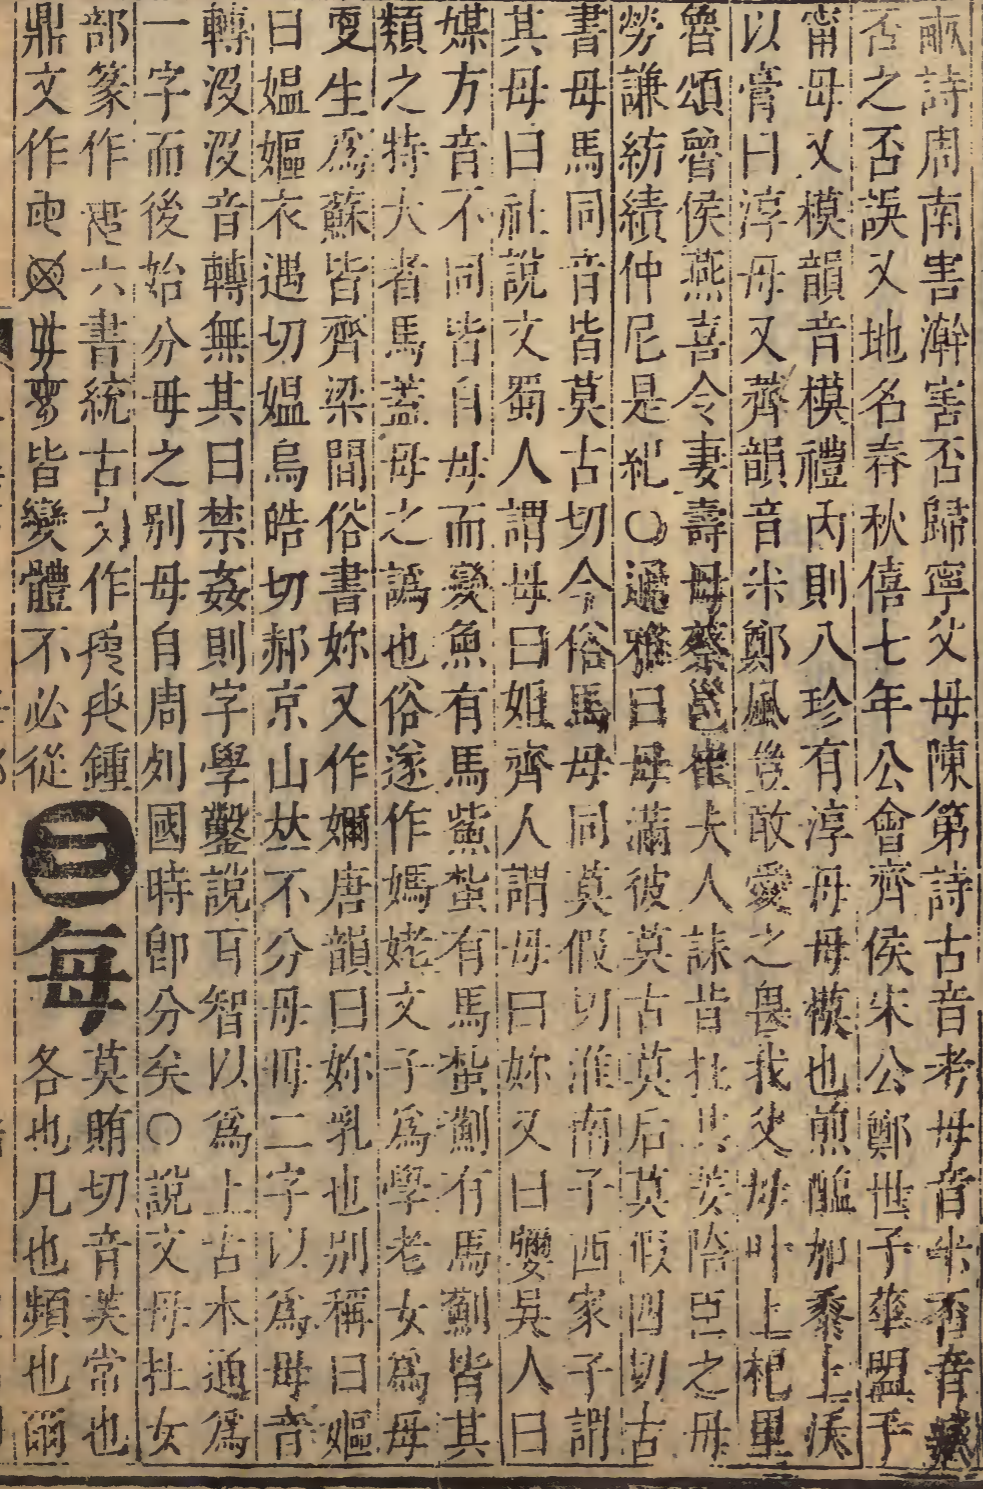 畞詩周南害澣害否歸寧父母陳第詩古音考母音米否音
否之否誤又地名春秋僖七年公會齊侯宋公鄭世子華盟于
甯母又模韻音模禮內則八珍有淳母母模也煎醢加黍上沃
以膏曰淳母又薺韻音米鄭風豈敢愛之畏我父母叶上杞里
魯頌魯侯燕喜令妻壽母蔡邕崔夫人誄昔在共姜陪臣之母
勞謙紡績仲尼是紀〇通雅曰母滿彼莫古莫后莫假四切古
書母馬同音皆莫古切今俗馬母同莫假切淮南子西家子謂
其母曰社說文蜀人謂母曰姐齊人謂母曰妳又曰㜷吳人曰
媒方音不同皆自母而變魚有馬鮆蜇有馬蜇薊有馬薊皆其
類之特大者馬蓋母之譌也俗遂作媽姥文子爲學老女爲母
叓生爲蘇皆齊梁間俗書妳又作嬭唐韻曰妳乳也別稱曰嫗
曰媼嫗衣遇切媼烏皓切郝京山𠀤不分母毋二字以爲毋音
轉沒沒音轉無其曰禁姦則字學鑿說耳智以爲上古本通爲
一字而後始分毋之别母自周列國時卽分矣〇說文毋从女
部篆作六書統古文作鍾
鼎文作皆變體不必從
三每
莫賄切音美常也
各也凡也頻也雖